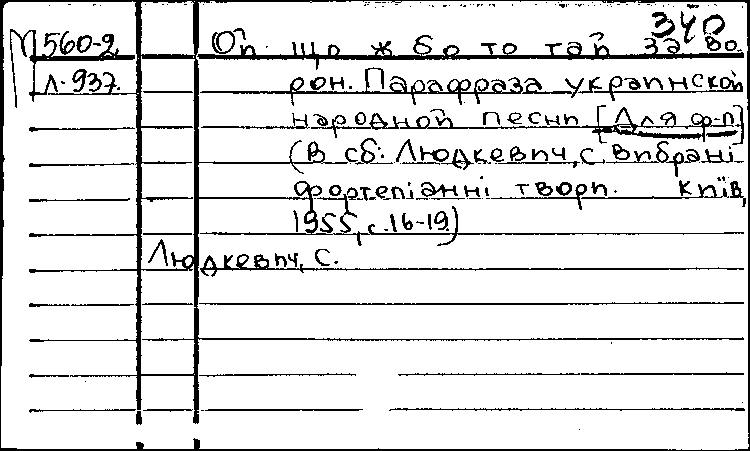 340
М 560-2 Ой що ж бо то тай за во
Л-937. рон. Парафраза украинской
народной песни [Для ф-п]
(В сб: Людкевич, С. Вибрані
фортепіанні твори. Київ,
1955, с. 16-19)
Людкевич, С.